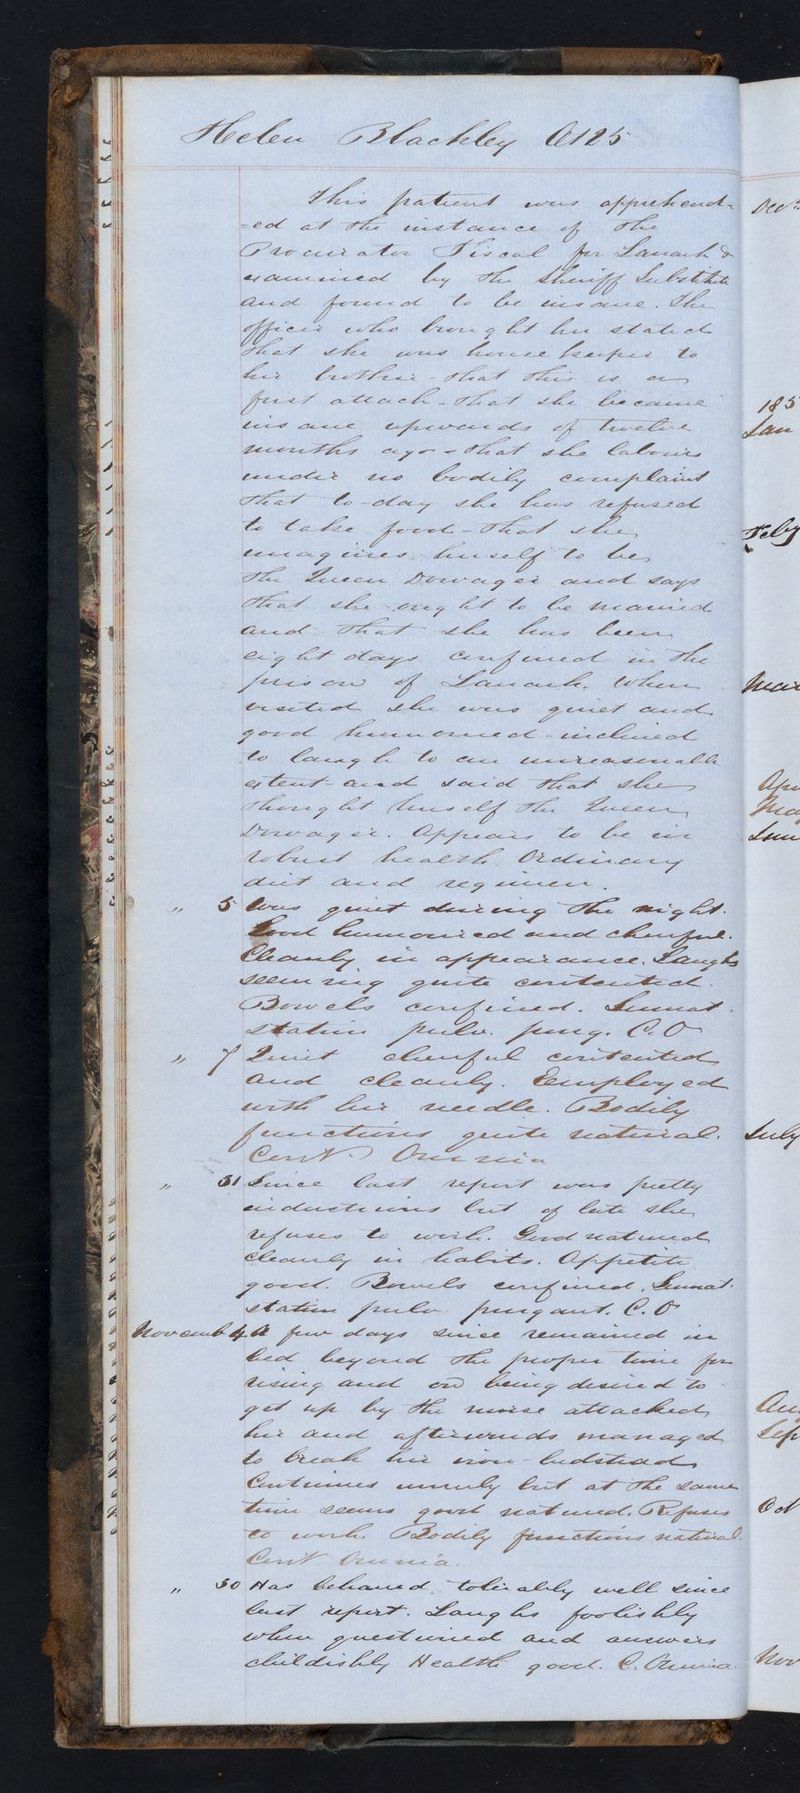 Helen Blackley A125
This patient was apprehend-
-ed at the instance of the
Procurator Fiscal for Lanark &
examined by the Sheriff Substitute
and found to be insane. The
officer who brought her stated
that she was housekeeper to
her brother - that this is a
first attack - that she became
insane upwards of twelve
months ago - that she labours
under no bodily complaint
that to-day she has refused
to take food - that she
imagines herself to be
the Queen Dowager and says
that she ought to be married
and that she has been
eight days confined in the
prison of Lanark. When
visited she was quiet and
good humoured - inclined
to laugh to an unreasonable
extent and said that she
thought herself the Queen
Dowager. Appears to be in
robust health Ordinary
diet and regimen.
" 5 Was quiet during the night.
Good humoured and cheerful.
Cleanly in appearance. Laughs
seeming quite contented.
Bowels confined. Sumat.
statim pulv. purg. C.O
" 7 Quiet cheerful contented
and cleanly. Employed
with her needle. Bodily
functions quite natural.
Cont. Omnia
" 31 Since last report was pretty
industrious but of late she
refuses to work. Good natured
cleanly in habits. Appetite
good. Bowels confined. Sumat.
statim pulv. purgant. C.O
Novemb 4 A few days since remained in
bed beyond the proper time for
rising and on being desired to
get up by the nurse attacked
her and afterwards managed
to break her iron-bedstead
Continues unruly but at the same
time seems good natured. Refuses
to work Bodily functions natural.
Cont Omnia.
" 30 Has behaved tolerably well since
last report. Laughs foolishly
when questioned and answers
childishly Health good. C. Omnia.
Dec
185
Jan
Feby
Mar
Apr
May
June
July
Aug
Sep
Oct
Nov